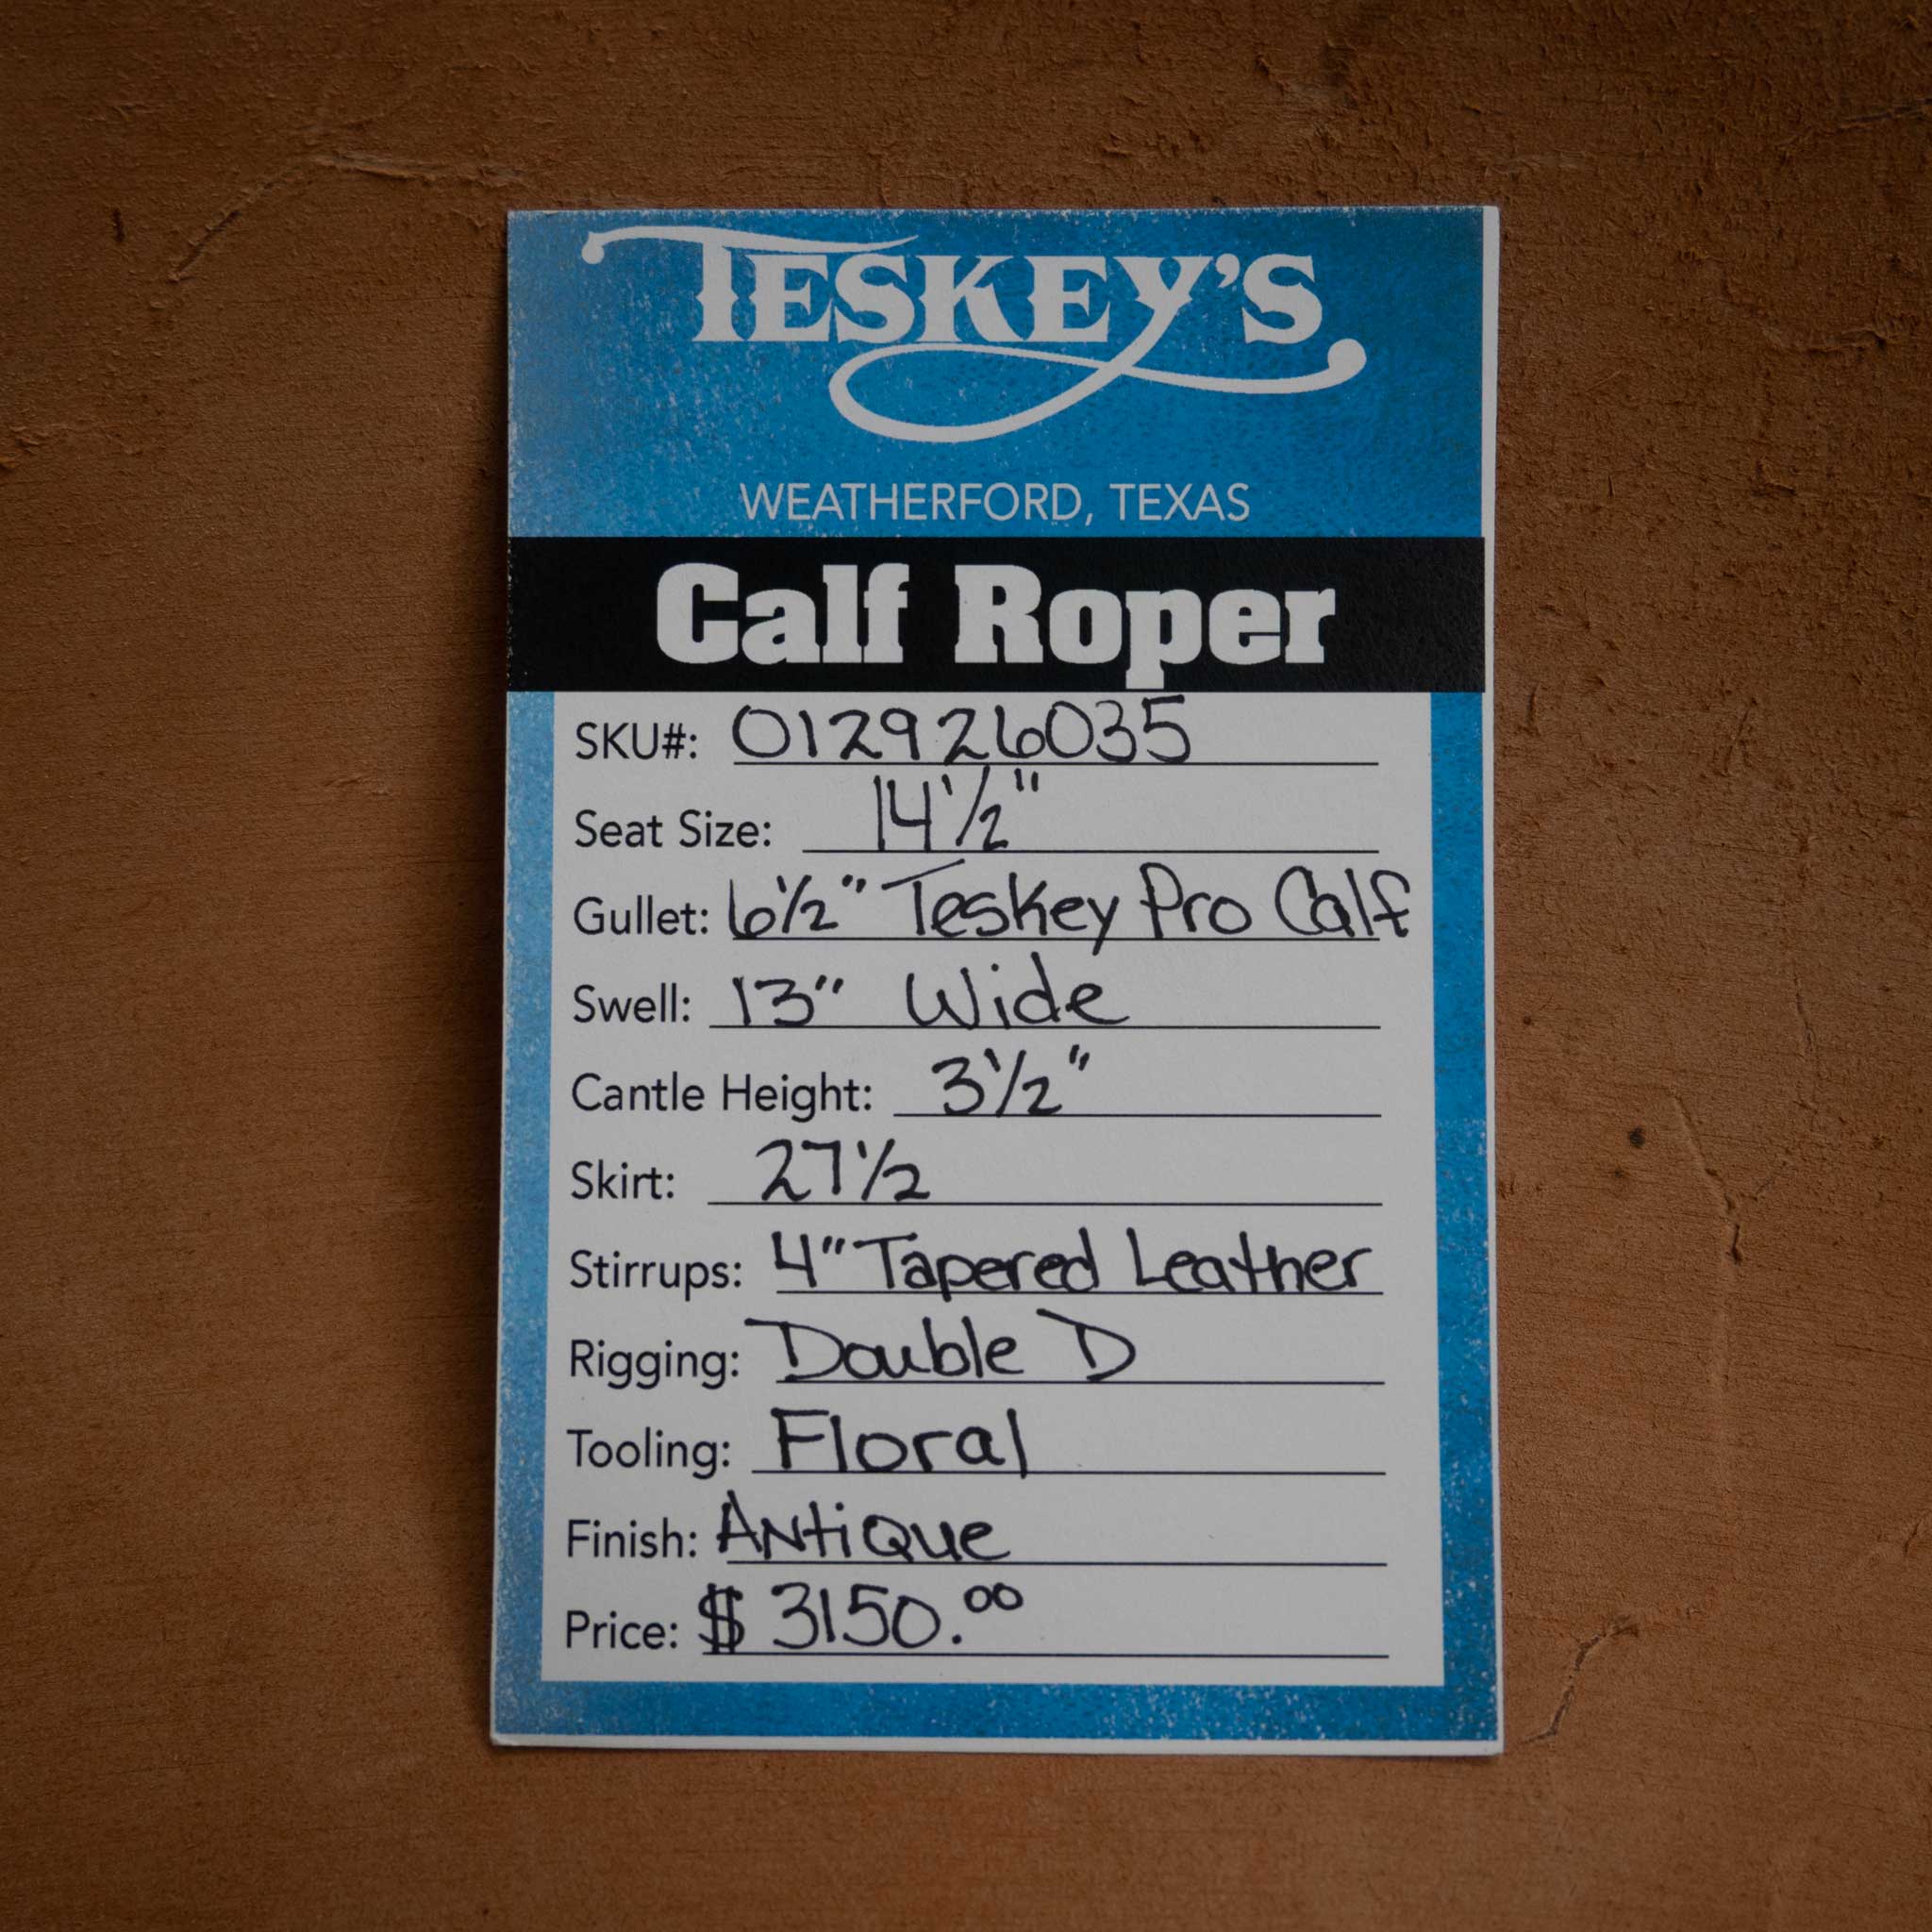 TESKEY'S
WEATHERFORD, TEXAS
Calf Roper
SKU#: 012926035
Seat Size: 14 1/2"
Gullet: 6 1/2" Teskey Pro Calf
Swell: 13" Wide
Cantle Height: 3 1/2"
Skirt: 27 1/2
Stirrups: 4" Tapered Leather
Rigging: Double D
Tooling: Floral
Finish: Antique
Price: $ 3150.00